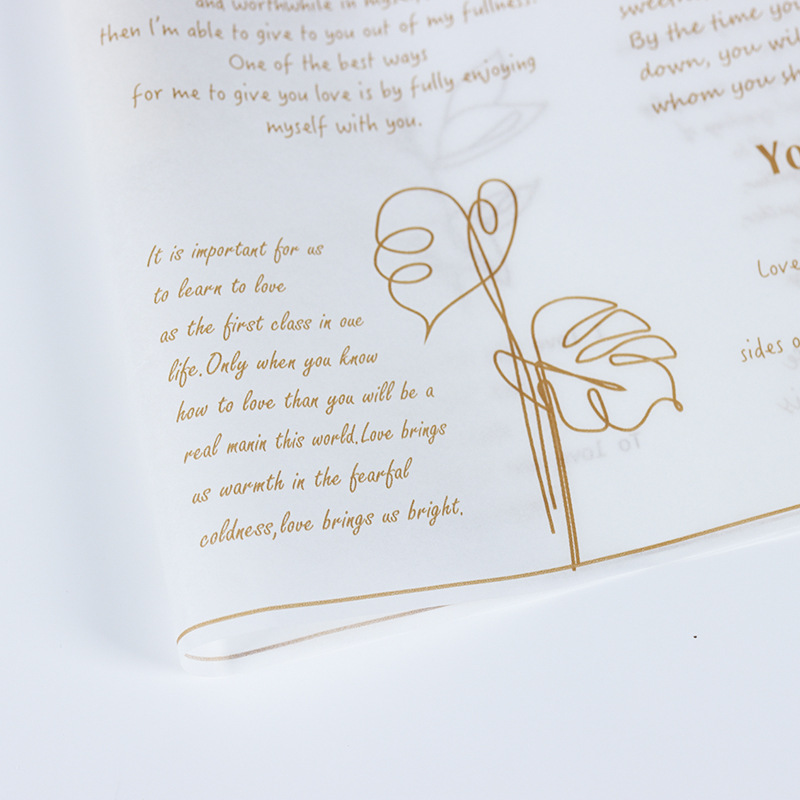 and worthwhile in
then I'm able to give to you out of my fullness.
One of the best ways
for me to give you love is by fully enjoying
myself with you.
It is important for us
to learn to love
as the first class in oue
life.Only when you know
how to love than you will be a
real manin this world.Love brings
us warmth in the fearful
coldness,love brings us bright.
By the time you
down, you will
whom you sh
Yo
Love
sides
To love